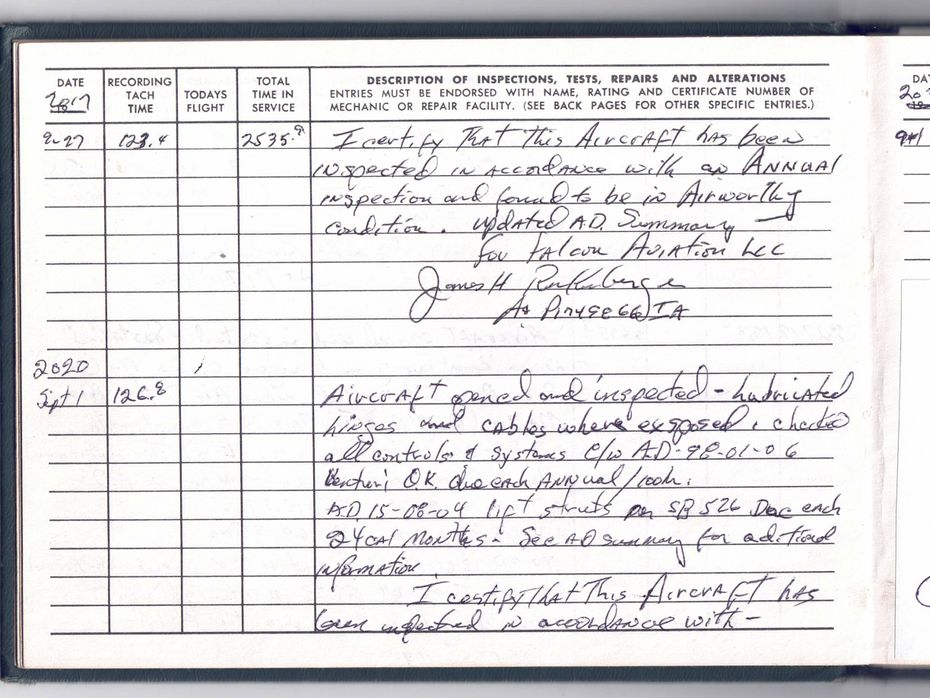 DATE
2017
RECORDING TACH TIME
TODAYS FLIGHT
TOTAL TIME IN SERVICE
DESCRIPTION OF INSPECTIONS, TESTS, REPAIRS AND ALTERATIONS
ENTRIES MUST BE ENDORSED WITH NAME, RATING AND CERTIFICATE NUMBER OF
MECHANIC OR REPAIR FACILITY. (SEE BACK PAGES FOR OTHER SPECIFIC ENTRIES.)
9-27 123.4 2535.9 I certify That This Aircraft has been
inspected in accordance with an Annual
inspection and found to be in Airworthy
condition. updated A.D. Summary
for Falcon Aviation LLC
James H
IA
2020
Sept 1 126.8 Aircraft opened and inspected - lubricated
hinges and cables where exsposed, checked
all controls & systems c/w A.D-98-01-06
Venturi O.K. due each Annual/100hr.
A.D. 15-08-04 lift struts per SB 526 Due each
24 cal Months - See AD summary for aditional
information.
I certify that This Aircraft has
been inspected in accordance with -